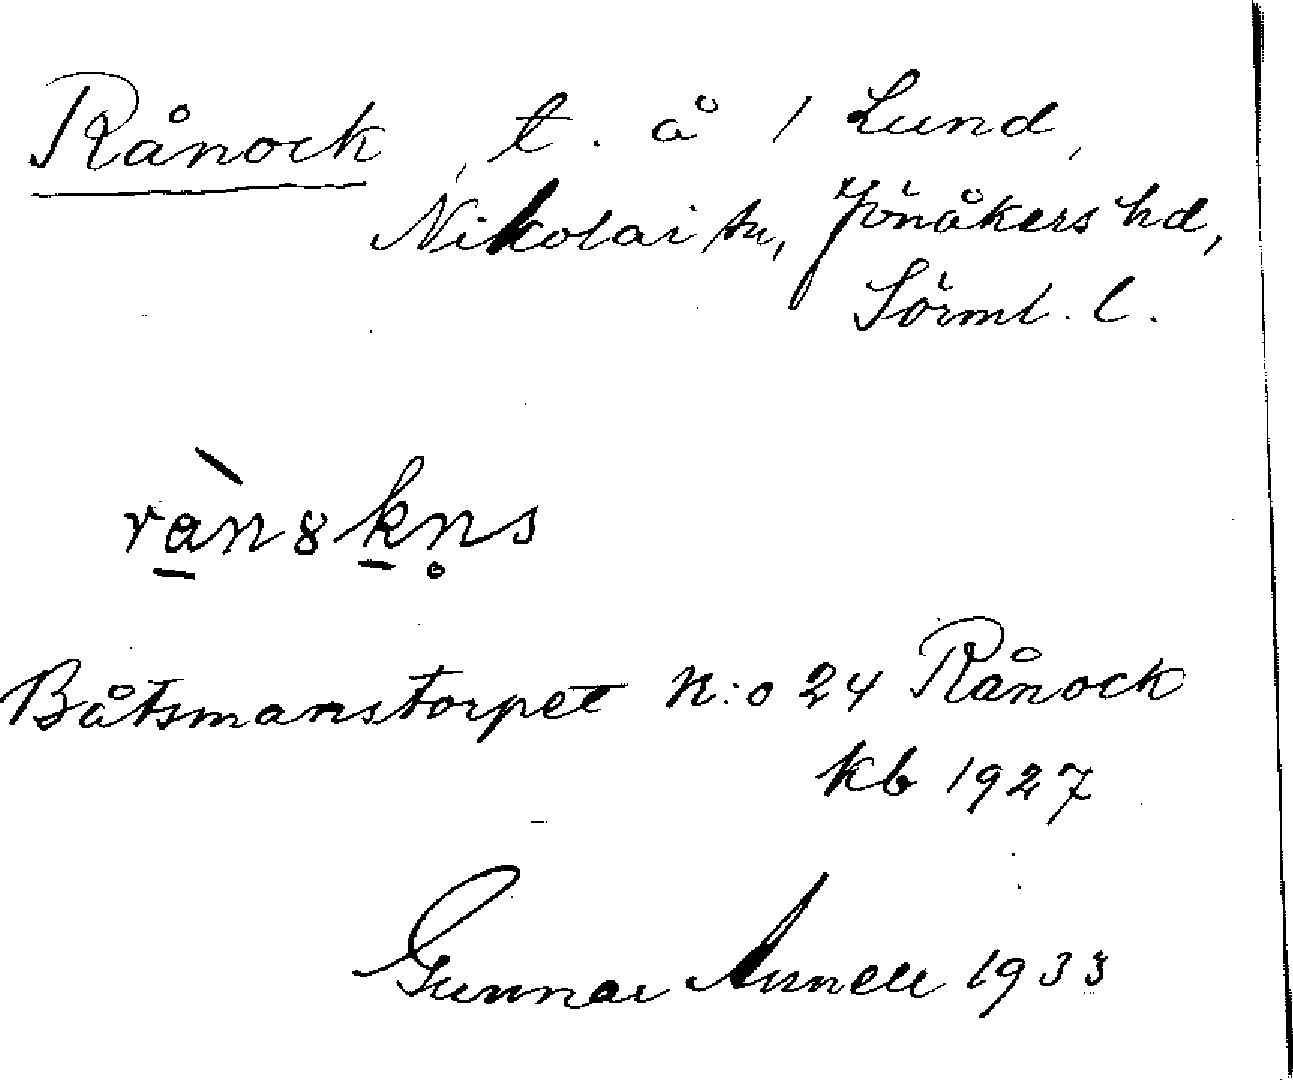 Rånock, t. å 1 Lund,
Nikolai sn, Jönåkers hd,
Sörml. l.
rànȣkn̥s
Båtsmanstorpet N:o 24 Rånock
kb 1927
Gunnar Annell 1933